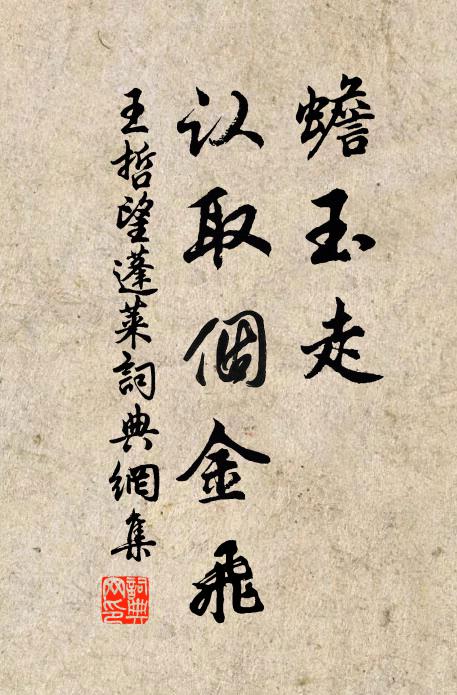 蟾玉走
认取個金飛
王哲望蓬萊詞典網集
詞典